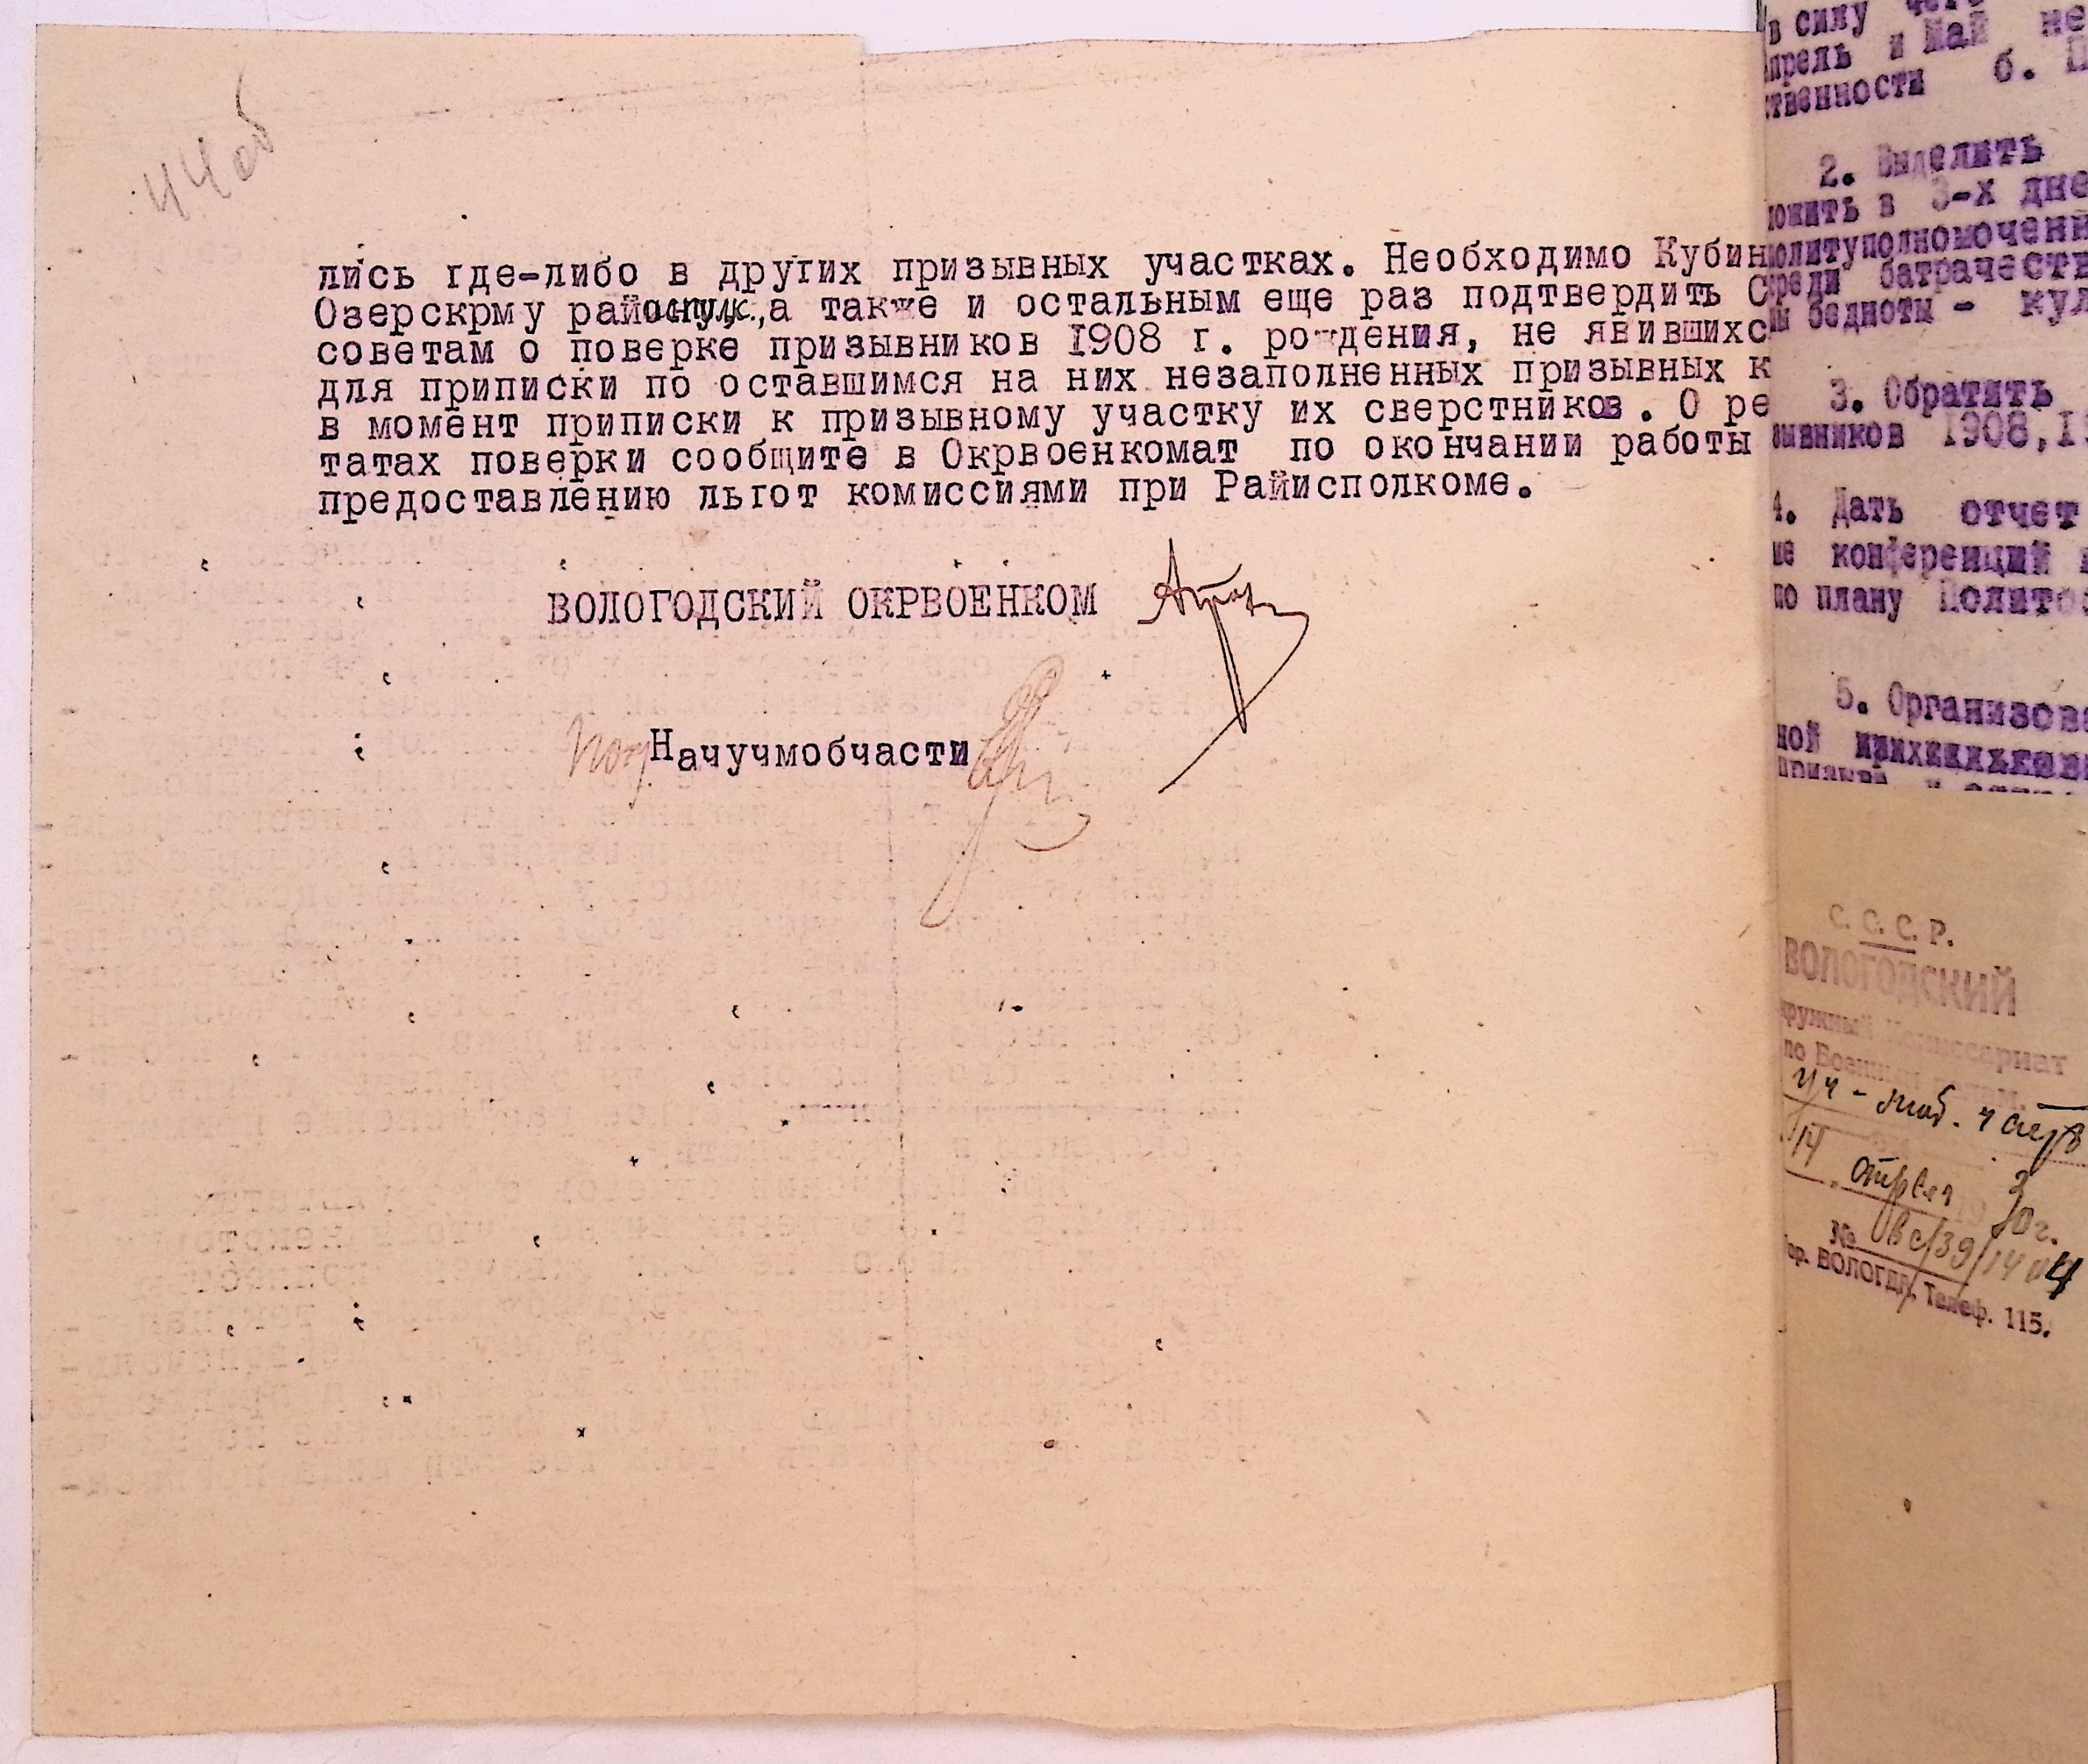 44 об
лись где-либо в других призывных участках. Необходимо Кубин
Озерскрму рай ,а также и остальным еще раз подтвердить С
советам о поверке призывников 1908 г. рождения, не явившихс
для приписки по оставшимся на них незаполненных призывных к
в момент приписки к призывному участку их сверстников. О ре
татах поверки сообщите в Окрвоенкомат по окончании работы
предоставлению льгот комиссиями при Райисполкоме.
ВОЛОГОДСКИЙ ОКРВОЕНКОМ
Начучмобчасти
в силу
апрель и Май не
ственности б. П
2. Выделить
ложить в 3-х дне
политуполномоченн
среди батрачеств
бедноты - кул
3. Обратить
зывников 1908,19
4. Дать отчет
ие конференций
по плану Полито
5. Организова
ной
С. С. С. Р.
ВОЛОГОДСКИЙ
кружный Комиссариат
по Военным
Уч - моб. часть
14 апреля 1930г.
№
гор. ВОЛОГДА, Телеф. 115.